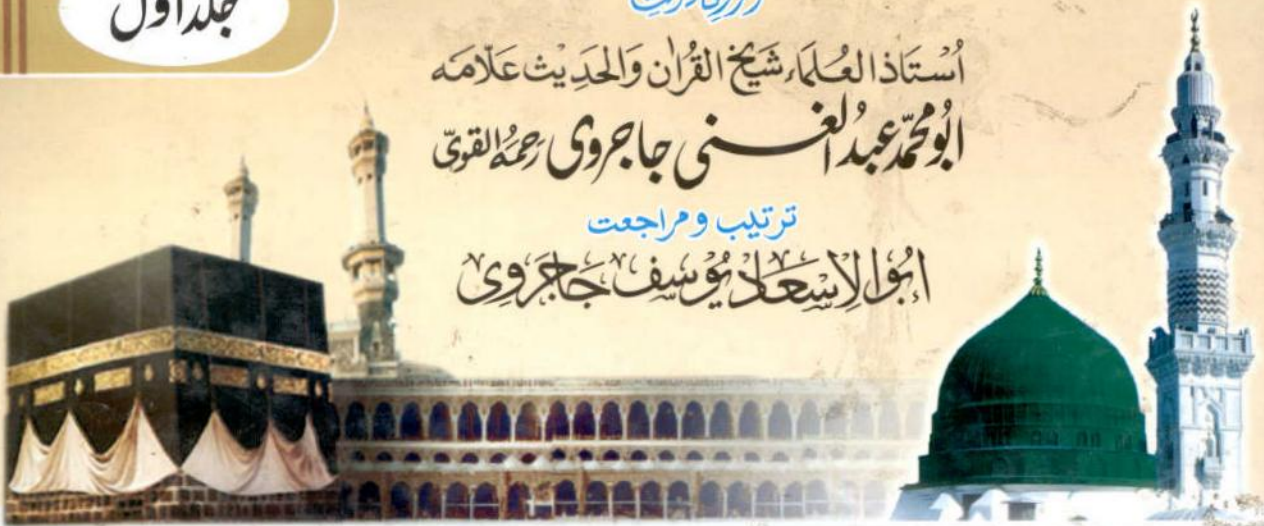 جلد اول
اُستَاذُ العُلَمَاء شَیخُ القُرآن وَالحَدِیث عَلّامَه
ابُو محمّد عبدُ الغنی جاجروی رَحِمَهُ القَوِیّ
ترتیب و مراجعت
ابُو الاِسعَاد یُوسُف جَاجَروِی